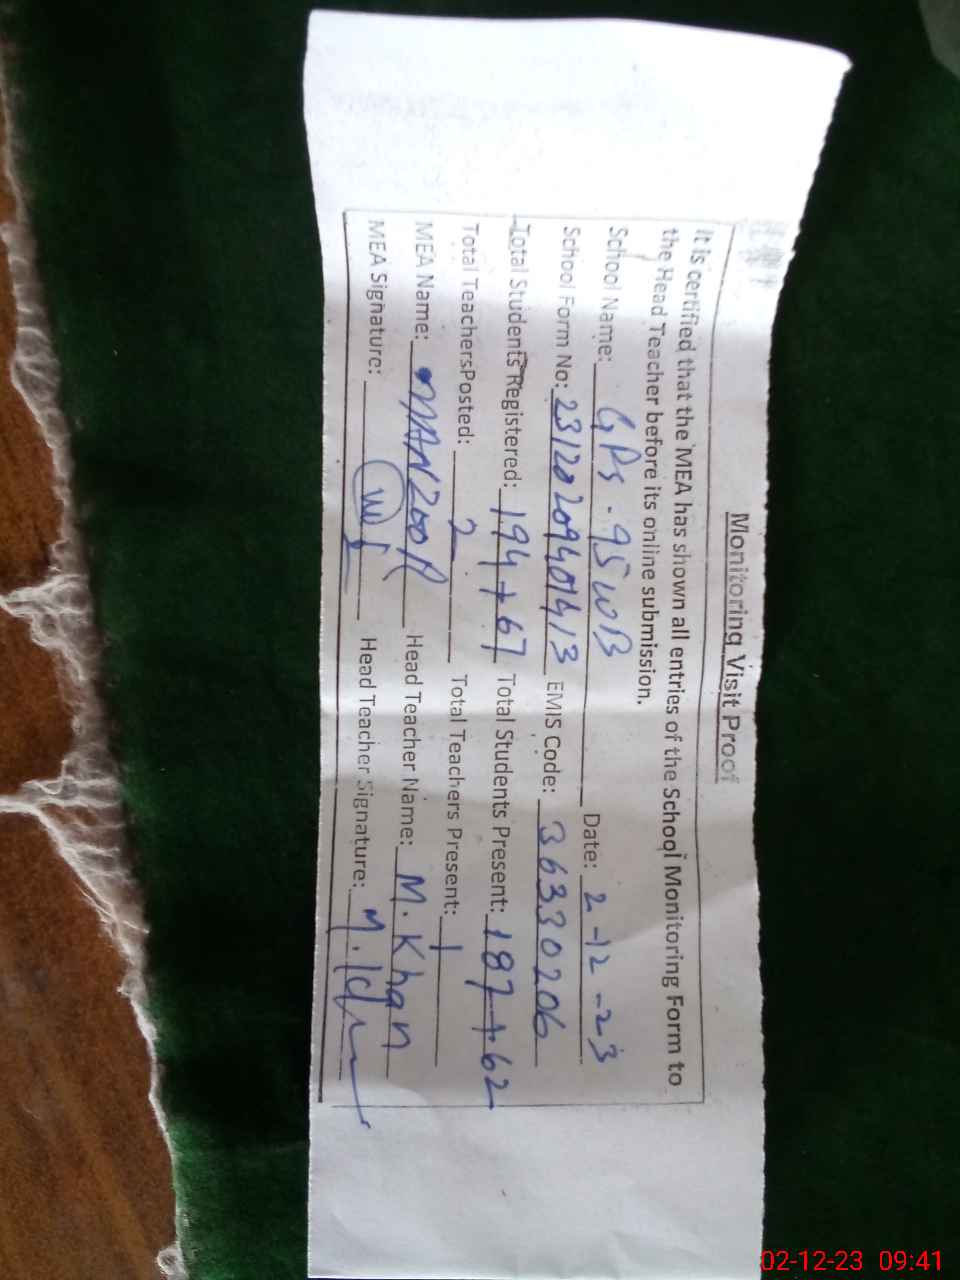 Monitoring Visit Proof
It is certified that the MEA has shown all entries of the School Monitoring Form to
the Head Teacher before its online submission.
School Name: GPS - 95 WB Date: 2-12-23
School Form No: 23120209401413 EMIS Code: 36330206
Total Students Registered: 194+67 Total Students Present: 187+62
Total TeachersPosted: 2 Total Teachers Present: 1
MEA Name: MANZOOR Head Teacher Name: M. Khan
MEA Signature: Head Teacher Signature:
02-12-23 09:41